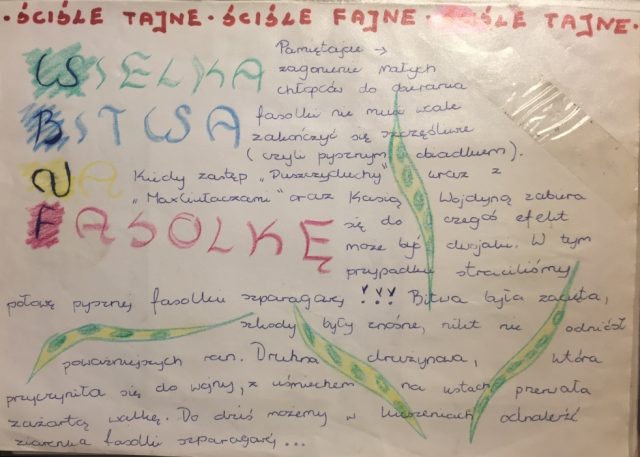 · ŚCIŚLE TAJNE · ŚCIŚLE FAJNE · ŚCIŚLE TAJNE ·
WIELKA
BITWA
NA
FASOLKĘ
Pamiętajcie →
zagonienie małych
chłopców do obierania
fasolki nie musi wcale
zakończyć się szczęśliwie
(czyli pysznym obiadkiem).
Kiedy zastęp „Duszyduchy" wraz z
„MaxCiułaczami" oraz Kasią Wojdyną zabiera
się do czegoś efekt
może być dwojaki. W tym
przypadku straciliśmy
połowę pysznej fasolki szparagowej !!! Bitwa była zacięta,
szkody były znośne, nikt nie odniósł
poważniejszych ran. Druhna drużynowa, która
przyczyniła się do wojny, z uśmiechem na ustach przerwała
zażartą walkę. Do dziś możemy w kieszeniach odnaleźć
ziarnka fasolki szparagowej ...